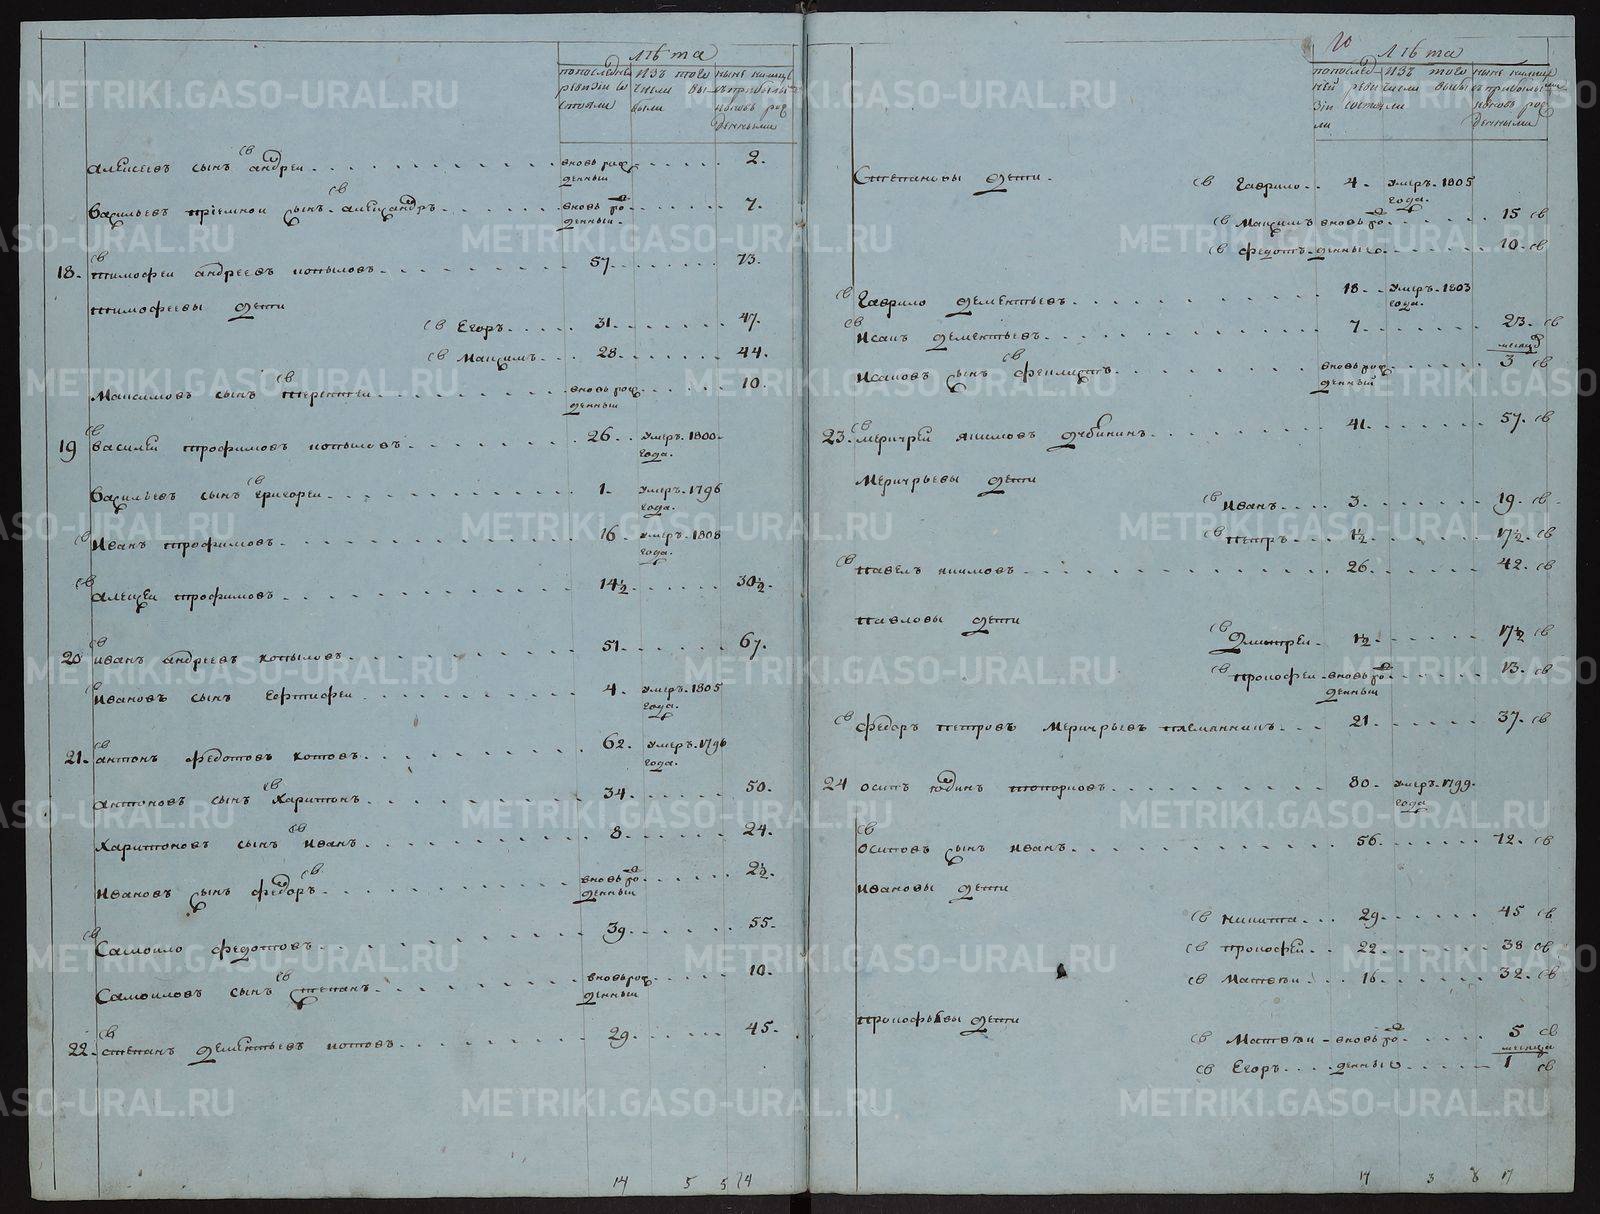 лѣта
попослѣдней ревизіи состояли
изъ того числа выбыли
ныне налицо съприбылыми иновь рожденными
Алексеевъ сынъ андреи вновь рожденныи 2.
Васильевъ приемнои сынъ александръ вновь рожденныи 7.
18. тимофеи андреевъ копыловъ 57 73.
тимофеевы дети
св Егоръ 31 47.
св Максимъ 28 44.
Максимовъ сынъ терентеи вновь рожденныи 10.
19 василеи трофимовъ копыловъ 26. умеръ. 1800. года.
Васильевъ сынъ Григореи 1. умеръ. 1796 года.
Иванъ трофимовъ 16 умеръ. 1808 года.
алексеи трофимовъ 14½ 30½.
20 иванъ андреевъ копыловъ 51. 67.
Ивановъ сынъ 4. умеръ. 1805 года.
21. антонъ федотовъ котовъ 62. умеръ. 1796 года.
антоновъ сынъ Харитонъ 34 50.
Харитоновъ сынъ Иванъ 8. 24.
Ивановъ сынъ федоръ вновь рожденныи 2½.
Самоило федотовъ 39. 55.
Самоиловъ сынъ степанъ вновь рожденныи 10.
22. степанъ дементьевъ котовъ 29. 45.
14 5 5 14
20
лѣта
попоследней ревизіи состояли
изъ того числа выбыли
ныне налицо съприбылыми иновь рожденными
Степановы дети.
св Гаврило 4. умеръ. 1805 года.
св Максимъ вновь ро 15 св
св федотъ денные 10. св
св Гаврило дементьевъ 18 умеръ. 1803 года.
св Исакъ дементьевъ 7. 23. св
месяц
Исаковъ сынъ феклистъ вновь рожденный 3 св
23. Меркурей якимовъ дубининъ 41. 57. св
Меркурьевы дети
св Иванъ 3. 19. св
св петръ 1½ 17½. св
св павелъ якимовъ 26. 42. св
павловы дети
св Дмитреи 1½ 17½ св
св прокофеи вновь рожденныи 13. св
св федоръ петровъ меркурьевъ племянникъ 21 37. св
24 осипъ юдинъ топорковъ 80. умеръ. 1799. года
св осиповъ сынъ иванъ 56. 72. св
Ивановы дети
св никита 29. 45 св
св прокофей 22. 38 св
св Матвеи 16 32. св
прокофьевы дети
св Матвеи вновь ро 5 св
месяца
св Егоръ денные 1 св
14 3 8 17
METRIKI.GASO-URAL.RU